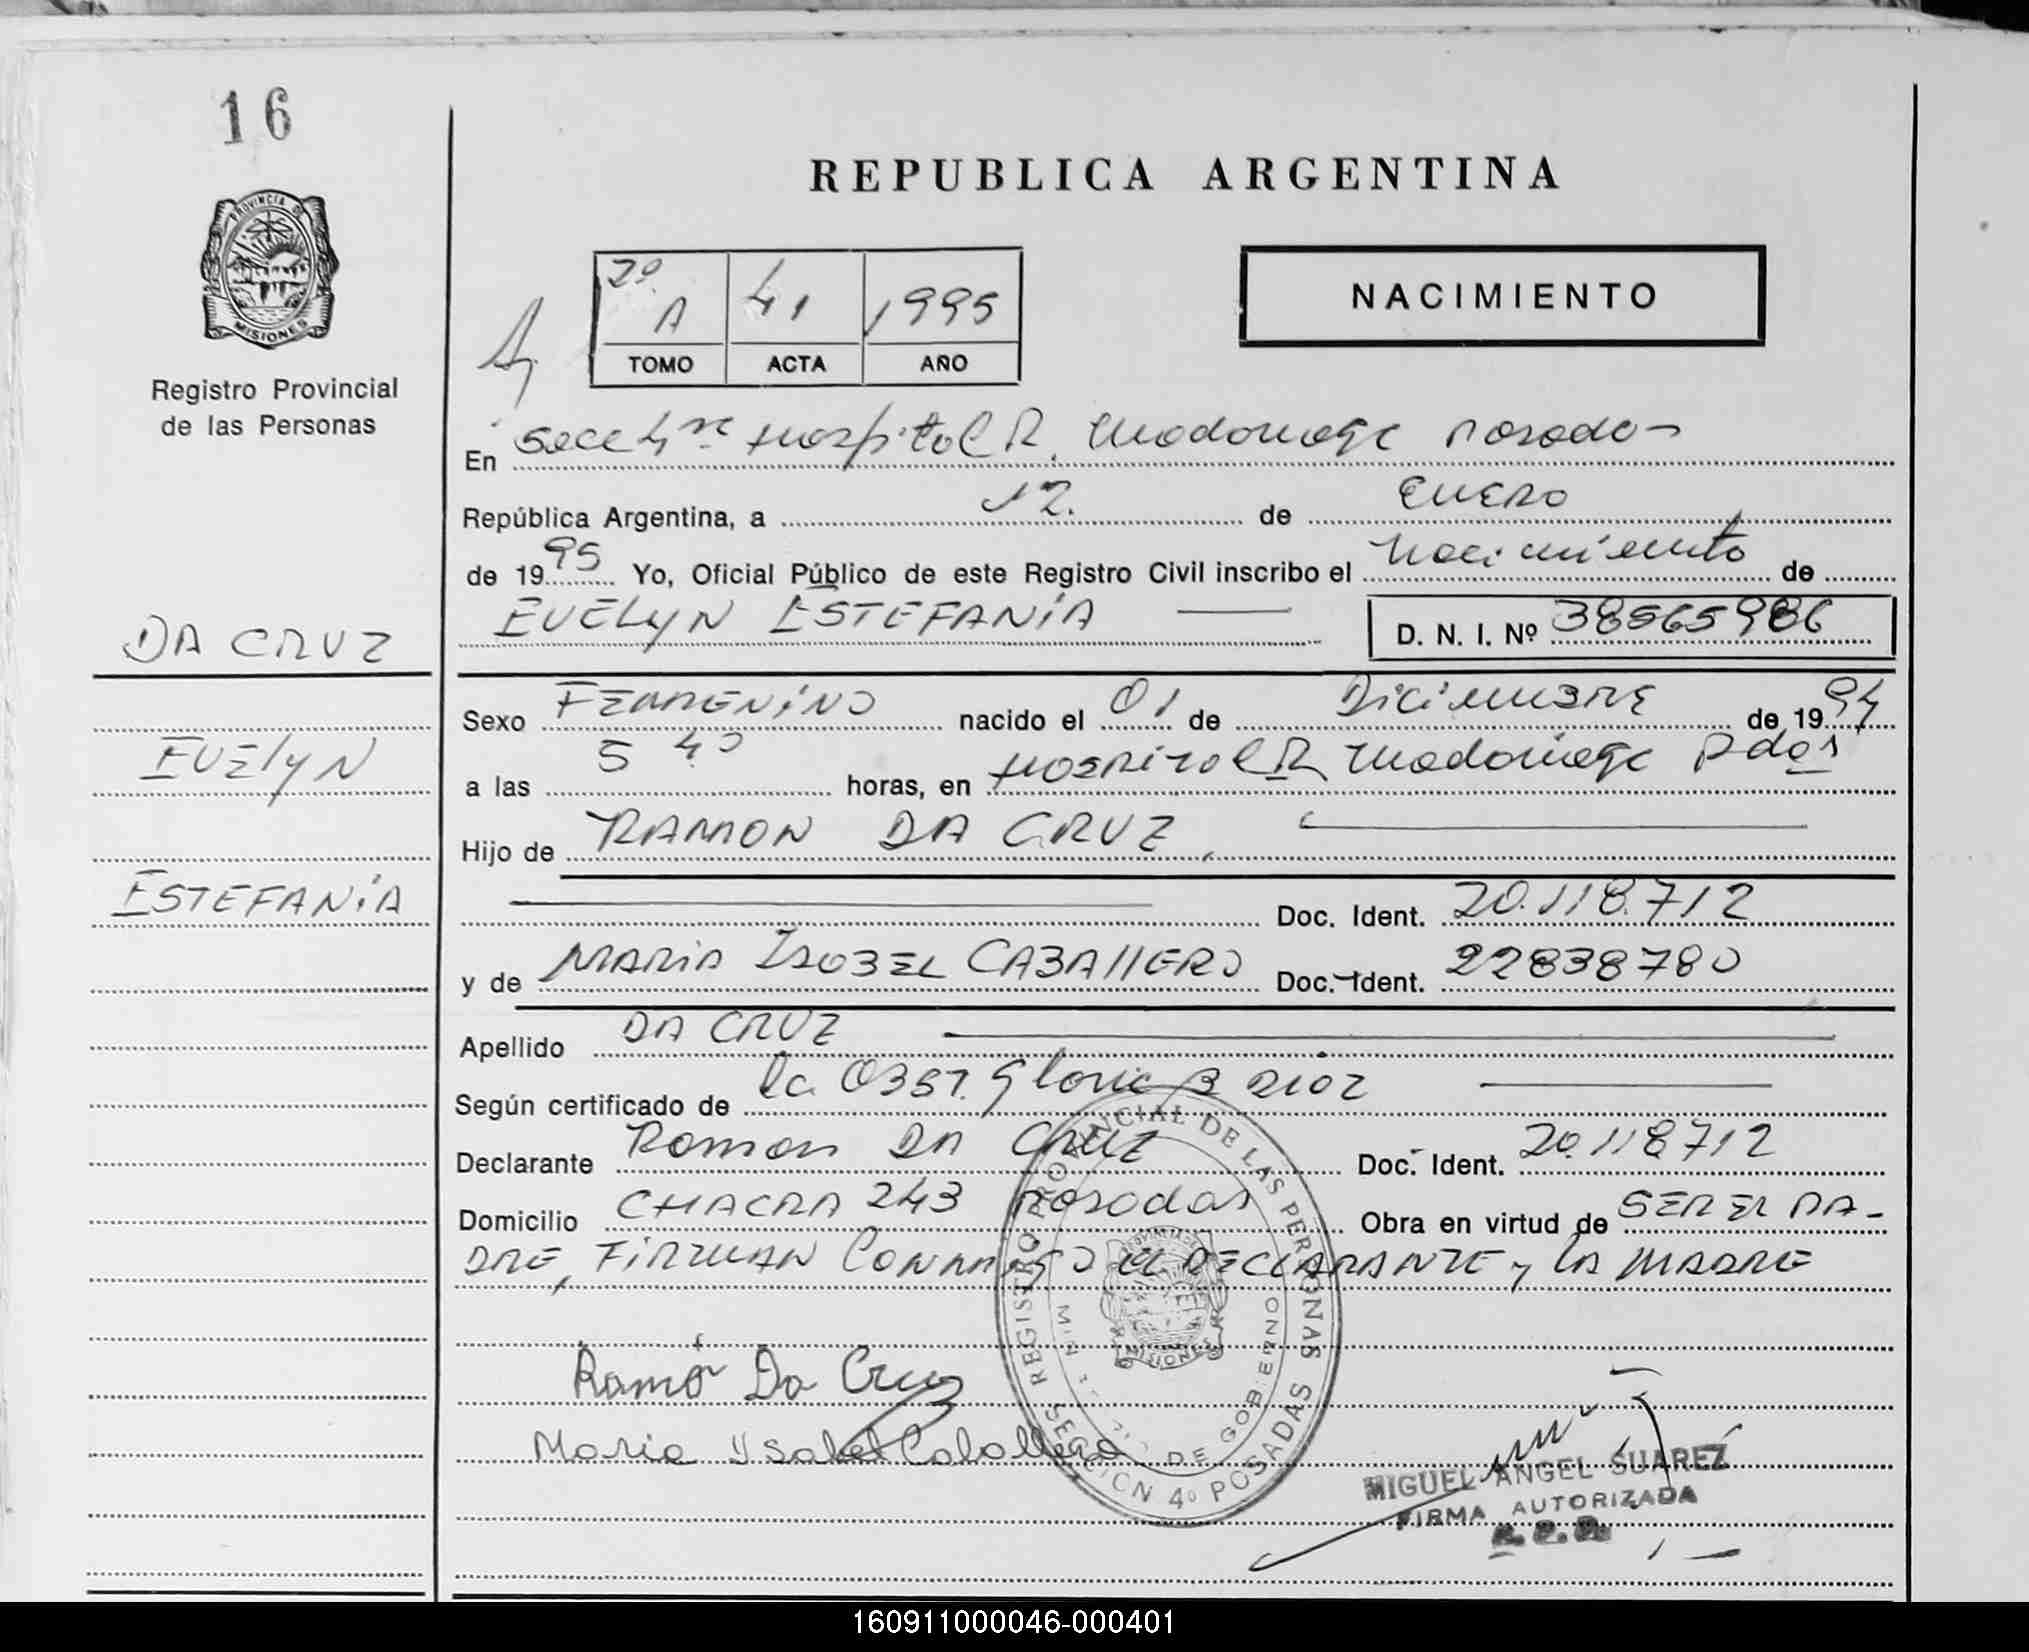 16
REPUBLICA ARGENTINA
PROVINCIA DE
MISIONES
Registro Provincial
de las Personas
2º A 41 1995
TOMO ACTA AÑO
NACIMIENTO
En Secc 4ta Hospital R. Madariaga Posadas
República Argentina, a 12. de Enero
de 1995 Yo, Oficial Público de este Registro Civil inscribo el Nacimiento de
EVELyN ESTEFANíA D. N. I. Nº 38565986
DA CRUZ
Evelyn
ESTEFANíA
Sexo FEMENINO nacido el 01 de Diciembre de 1994
a las 5 40 horas, en Hospital R Madariaga Pdas
Hijo de RAMON DA CRUZ
Doc. Ident. 20.118.712
y de MARIA ISABEL CABALLERO Doc. Ident. 22838780
Apellido DA CRUZ
Según certificado de la Obst. Gloria
Declarante Ramon DA CRUZ Doc. Ident. 20.118712
Domicilio CHACRA 243 Posadas Obra en virtud de SER EL PA-
DRE, FIRMAN CONMIGO EL DECLARANTE y LA MADRE
Ramón Da Cruz
Maria Ysabel Caballero
REGISTRO PROVINCIAL DE LAS PERSONAS
SECCION 4º POSADAS
DE GOBIERNO
MISIONES
MIGUEL ANGEL SUAREZ
FIRMA AUTORIZADA
160911000046-000401